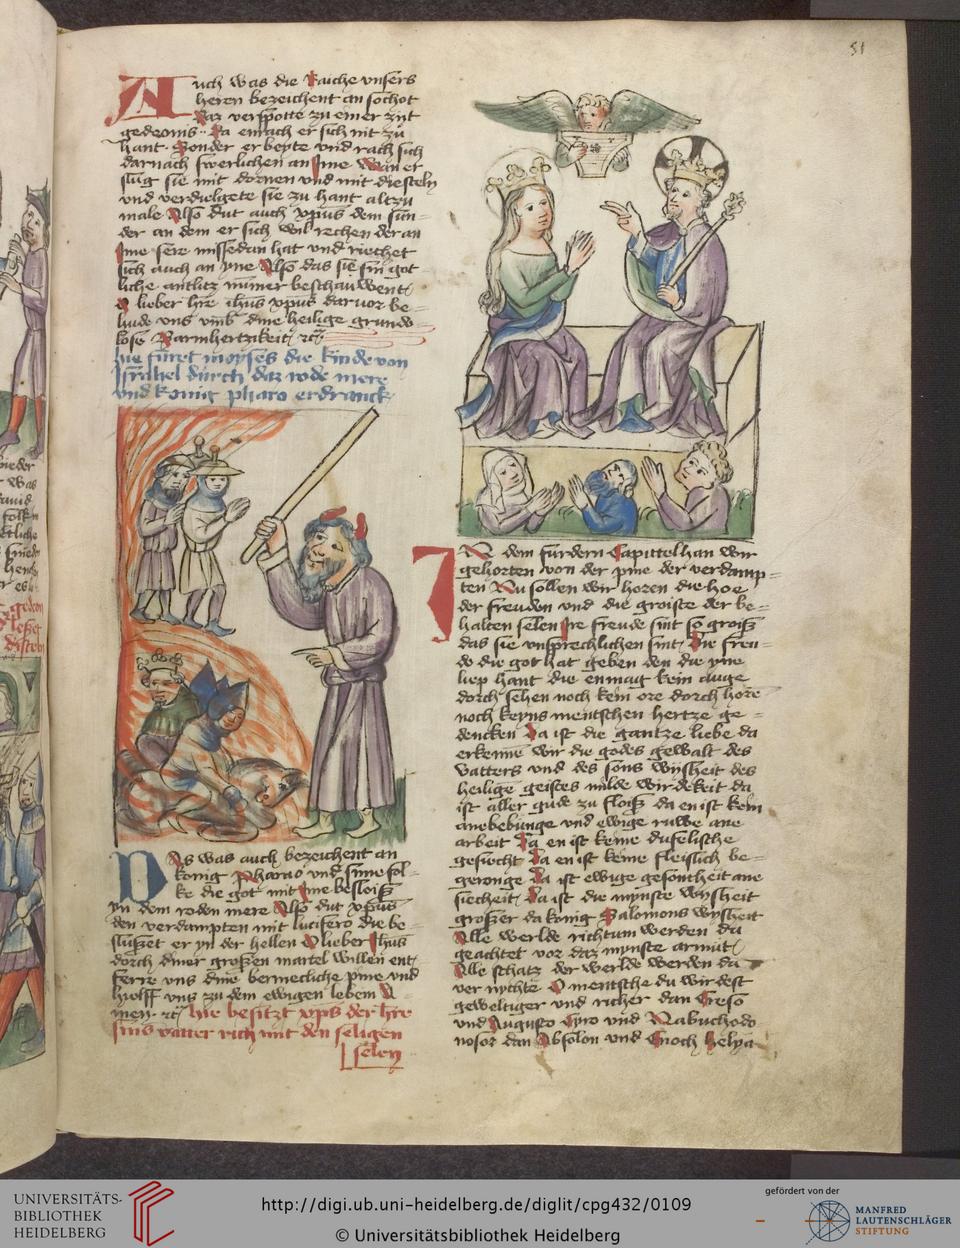 51
Auch was die Raiche vnsers
heren bezeichent an sochot
Daz verspotte zu einer zyt
gedeonis. Da enrach er sich nit zu
hant. Sonder er beyte vnd rach sich
darnach swerlichen an Jme Wan er
slug sie mit dornen vnd mit diesteln
vnd verdielgete sie zu hant altzu
male Also dut auch xpus dem sun-
der an dem er sich wil rechen der an
Jme sere missedan hat vnd riechet
sich auch an yne Also das sie sin got-
liche antlitz nummer beschauwent
O lieber hre ihus xpus daruor be-
hude vns vmb dine heilige grundo-
lose Barmhertzikeit
hie furet moyses die kinde von
Jsrahel durch daz rode mere
vnd konig pharo erdranck
Das was auch bezeichent an
konig Pharao vnd sime fol-
ke die got mit Jme besloiß
yn dem roden mere Also dut xpus
den verdampten mit lucifero die be-
slußet er yn der hellen O lieber Jhus
dorch diner großen martel willen ent-
ferre vns dine bermecliche pine vnd
hielff vns zu dem ewigen lebem A-
men. hie besitzt xps der hre
sins vatter rich mit den seligen
selen
JN dem furdern Capittel han wir
gehorten von der pine der verdamp-
ten Nu sollen wir horen die hoe
der freuden vnd die groiste der be-
halten selen Jre freude sint so groiß
das sie vnsprechlichen sint Die freu-
de die got hat geben den die yne
liep hant die enmag kein auge
dorch sehen noch kein ore dorch hore
noch keyns mentschen hertze ge-
dencken Da ist die gantze liebe da
erkenne wir die godes gewalt des
vatters vnd des sons wyßheit des
heilige geistes milde wirdekeit da
ist aller gude zu floiß da en ist kein
anebebunge vnd ewige ruwe ane
arbeit Da en ist keine dufelische
gesiecht Da en ist keine fleislich be-
geronge Da ist ewige gesontheit ane
siecheit Da ist die mynste wyßheit
großer da konig Salomons wyßheit
Alle werlde richtum werden da
geachtet vor daz mynste armut
Alle schatz der werlde werden da
ver nychte O mentsche du wirdest
geweltiger vnd richer dan Creso
vnd Augusto Cyro vnd Nabuchodo
nosor dan Absolon vnd Enoch helya
UNIVERSITÄTS-
BIBLIOTHEK
HEIDELBERG
http://digi.ub.uni-heidelberg.de/diglit/cpg432/0109
© Universitätsbibliothek Heidelberg
gefördert von der
MANFRED
LAUTENSCHLÄGER
STIFTUNG